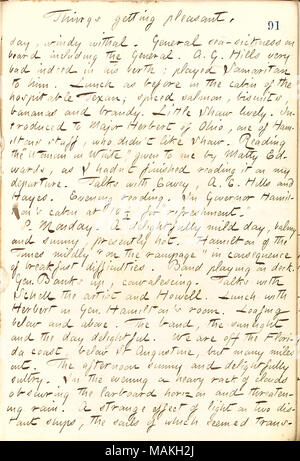 Things getting pleasant.
91
day, windy withal. General sea-sickness on
board including the General. A. G. Hills very
bad indeed in his birth; played Samaritan
to him. Lunch as before in the cabin of the
hospitable Texan; spiced salmon, biscuits
bananas and brandy. Little Shaw lively. In-
troduced to Major Herbert of Ohio, one of Ham-
iltons staff, who didn't like Shaw. Reading
the "Woman in White" given to me by Matty Ed-
wards, as I hadn't finished reading it on my
departure. Talks with Cavey, A. G. Hills and
Hayes. Evening reading. In Governor Hamil-
ton's cabin at 10 1/2 for "refreshment."
Monday. A delightfully mild day, balmy
and sunny, presently hot. Hamilton of the
Times mildly "on the rampage" in consequence
of breakfast difficulties. Band playing on deck.
Gen. Banks up, convalescing. Talks with
Schell the artist and Howell. Lunch with
Herbert in Gen. Hamilton's room. Loafing
below and above. The band, the sunlight
and the day delightful. We are off the Flori-
da coast, below St Augustine, but many miles
out. The afternoon sunny and delightfully
sultry. In the evening a heavy rack of clouds
obscuring the larboard horizon and threaten-
ing rain. A strange effect of light on two dis-
tant ships, the sails of which seemed trans-
alamy
MAKH2J